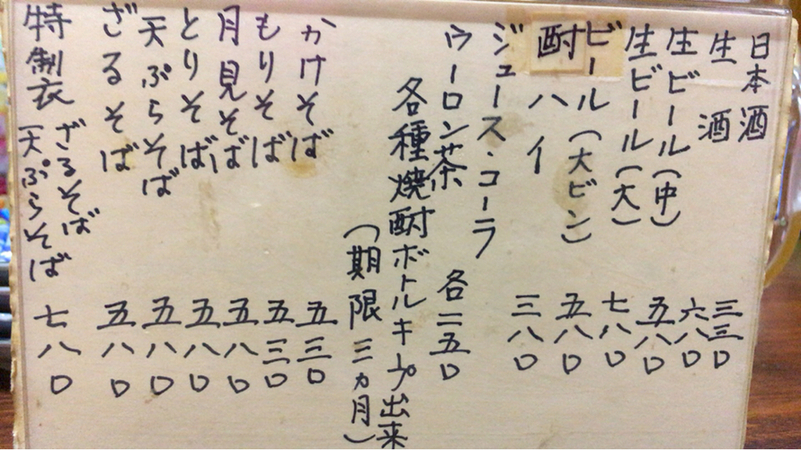 日本酒 三三〇
生酒 六八〇
生ビール(中) 五八〇
生ビール(大) 七八〇
ビール(大ビン) 五八〇
酎ハイ 三八〇
ジュース・コーラ
ウーロン茶 各二五〇
各種焼酎ボトルキープ出来
(期限三ヵ月)
かけそば 五三〇
もりそば 五三〇
月見そば 五八〇
とりそば 五八〇
天ぷらそば 五八〇
ざるそば 五八〇
特製衣 ざるそば
天ぷらそば 七八〇